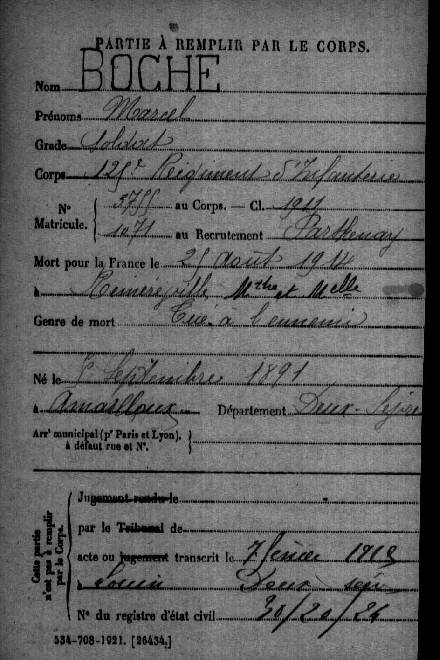 PARTIE À REMPLIR PAR LE CORPS.
Nom BOCHE
Prénoms Marcel
Grade Soldat
Corps 125e Régiment d'Infanterie
N° Matricule. { 5755 au Corps. — Cl. 1911
1071 au Recrutement Parthenay
Mort pour la France le 25 août 1914
à Réméréville Mthe et Melle
Genre de mort Tué à l'ennemi
Né le Septembre 1891
à Amailloux Département Deux-Sèvres
Arrt municipal (pr Paris et Lyon), à défaut rue et N°. }
Cette partie n'est pas à remplir par le Corps.
Jugement rendu le
par le Tribunal de
acte ou jugement transcrit le 7 février
à Louin Deux
N° du registre d'état civil 30/20/26
534-708-1921. [26434.]